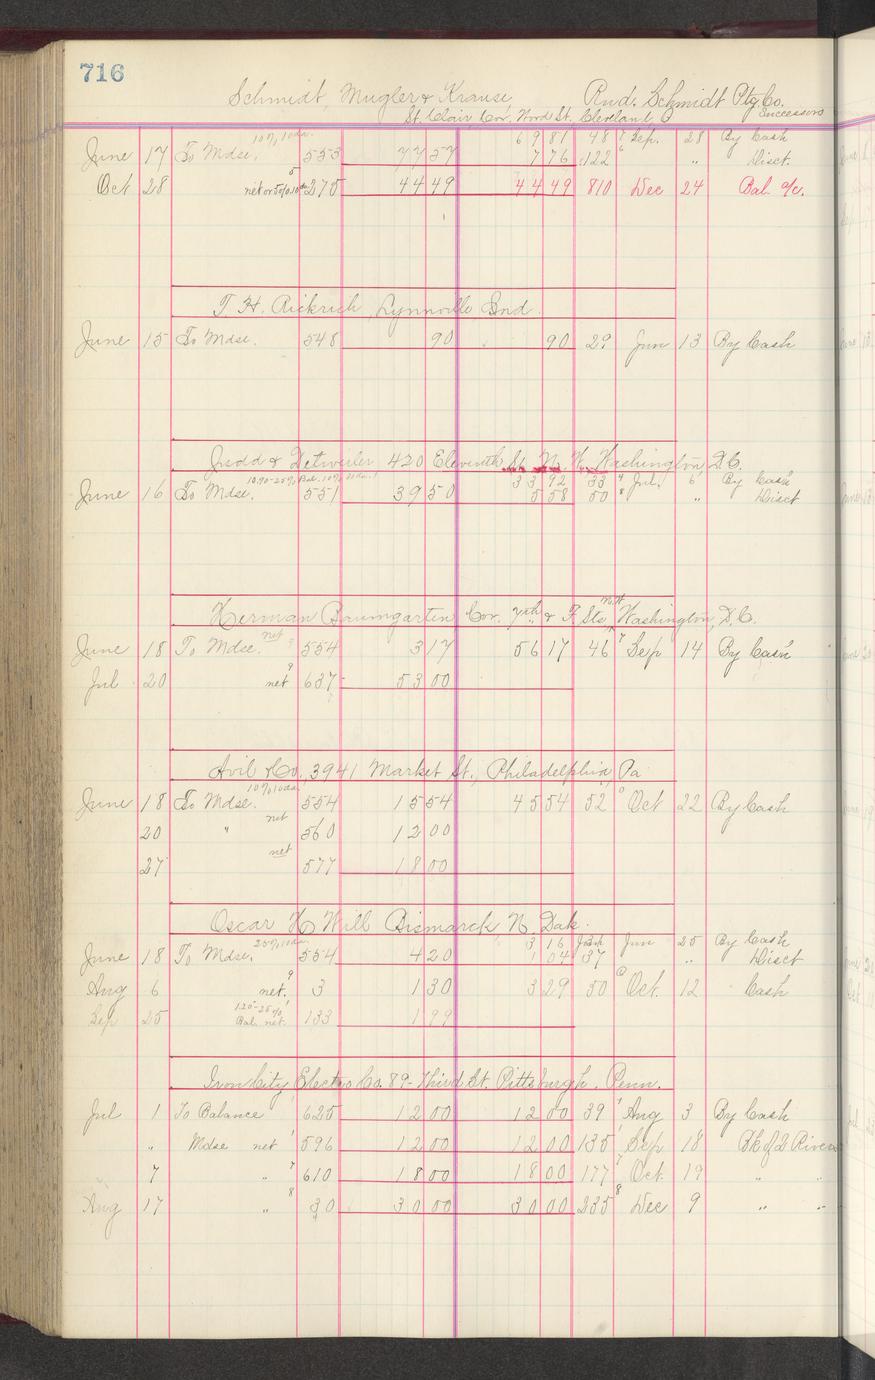 716
Schmidt, Mugler & Krause, Rud. Schmidt Ptg. Co.
St. Clair, Cor. Wood St. Cleveland, O Successors
June 17 To Mdse. 10% 10 da. 553 77 57 69 81 48 7 Sep. 28 By Cash
7 76 122 6 " Disct.
Oct 28 net or 5% 10 da 5 275 44 49 44 49 810 Dec 24 Bal. a/c.
T. H. Rickrich, Lynnville Ind.
June 15 To Mdse. 548 90 90 29 Jun 13 By Cash
Judd & Detweiler 420 Eleventh St. N. W. Washington, D.C.
June 16 To Mdse. 10.90-25% Bal. 10% 551 39 50 33 92 33 4 Jul. 6 By Cash
5 58 50 8 " Disct
Herman Baumgarten Cor. 7th & F. Sts. N.W. Washington, D.C.
June 18 To Mdse. net 9 554 3 17 56 17 46 7 Sep 14 By Cash
Jul 20 net 9 637 53 00
Avil & Co. 3941 Market St., Philadelphia, Pa
June 18 To Mdse. 10% 10 da. 554 15 54 45 54 52 Oct 22 By Cash
20 " net 560 12 00
27 net 577 18 00
Oscar H. Will Bismarck N. Dak.
June 18 To Mdse. 25% 10 da. 554 4 20 3 16 Jun 25 By Cash
1 04 37 " Disct
Aug 6 net. 9 3 1 30 3 29 50 Oct. 12 Cash
Sep 25 1.20-25% Bal. net. 133 1 99
Iron City Electro Co. 89-Third St. Pittsburgh. Penn.
Jul 1 To Balance 625 12 00 12 00 39 1 Aug 3 By Cash
" Mdse net 1 596 12 00 12 00 135 1 Sep 18
7 " 7 610 18 00 18 00 177 7 Oct. 19 " "
Aug 17 " 8 30 30 00 30 00 235 8 Dec 9 " "